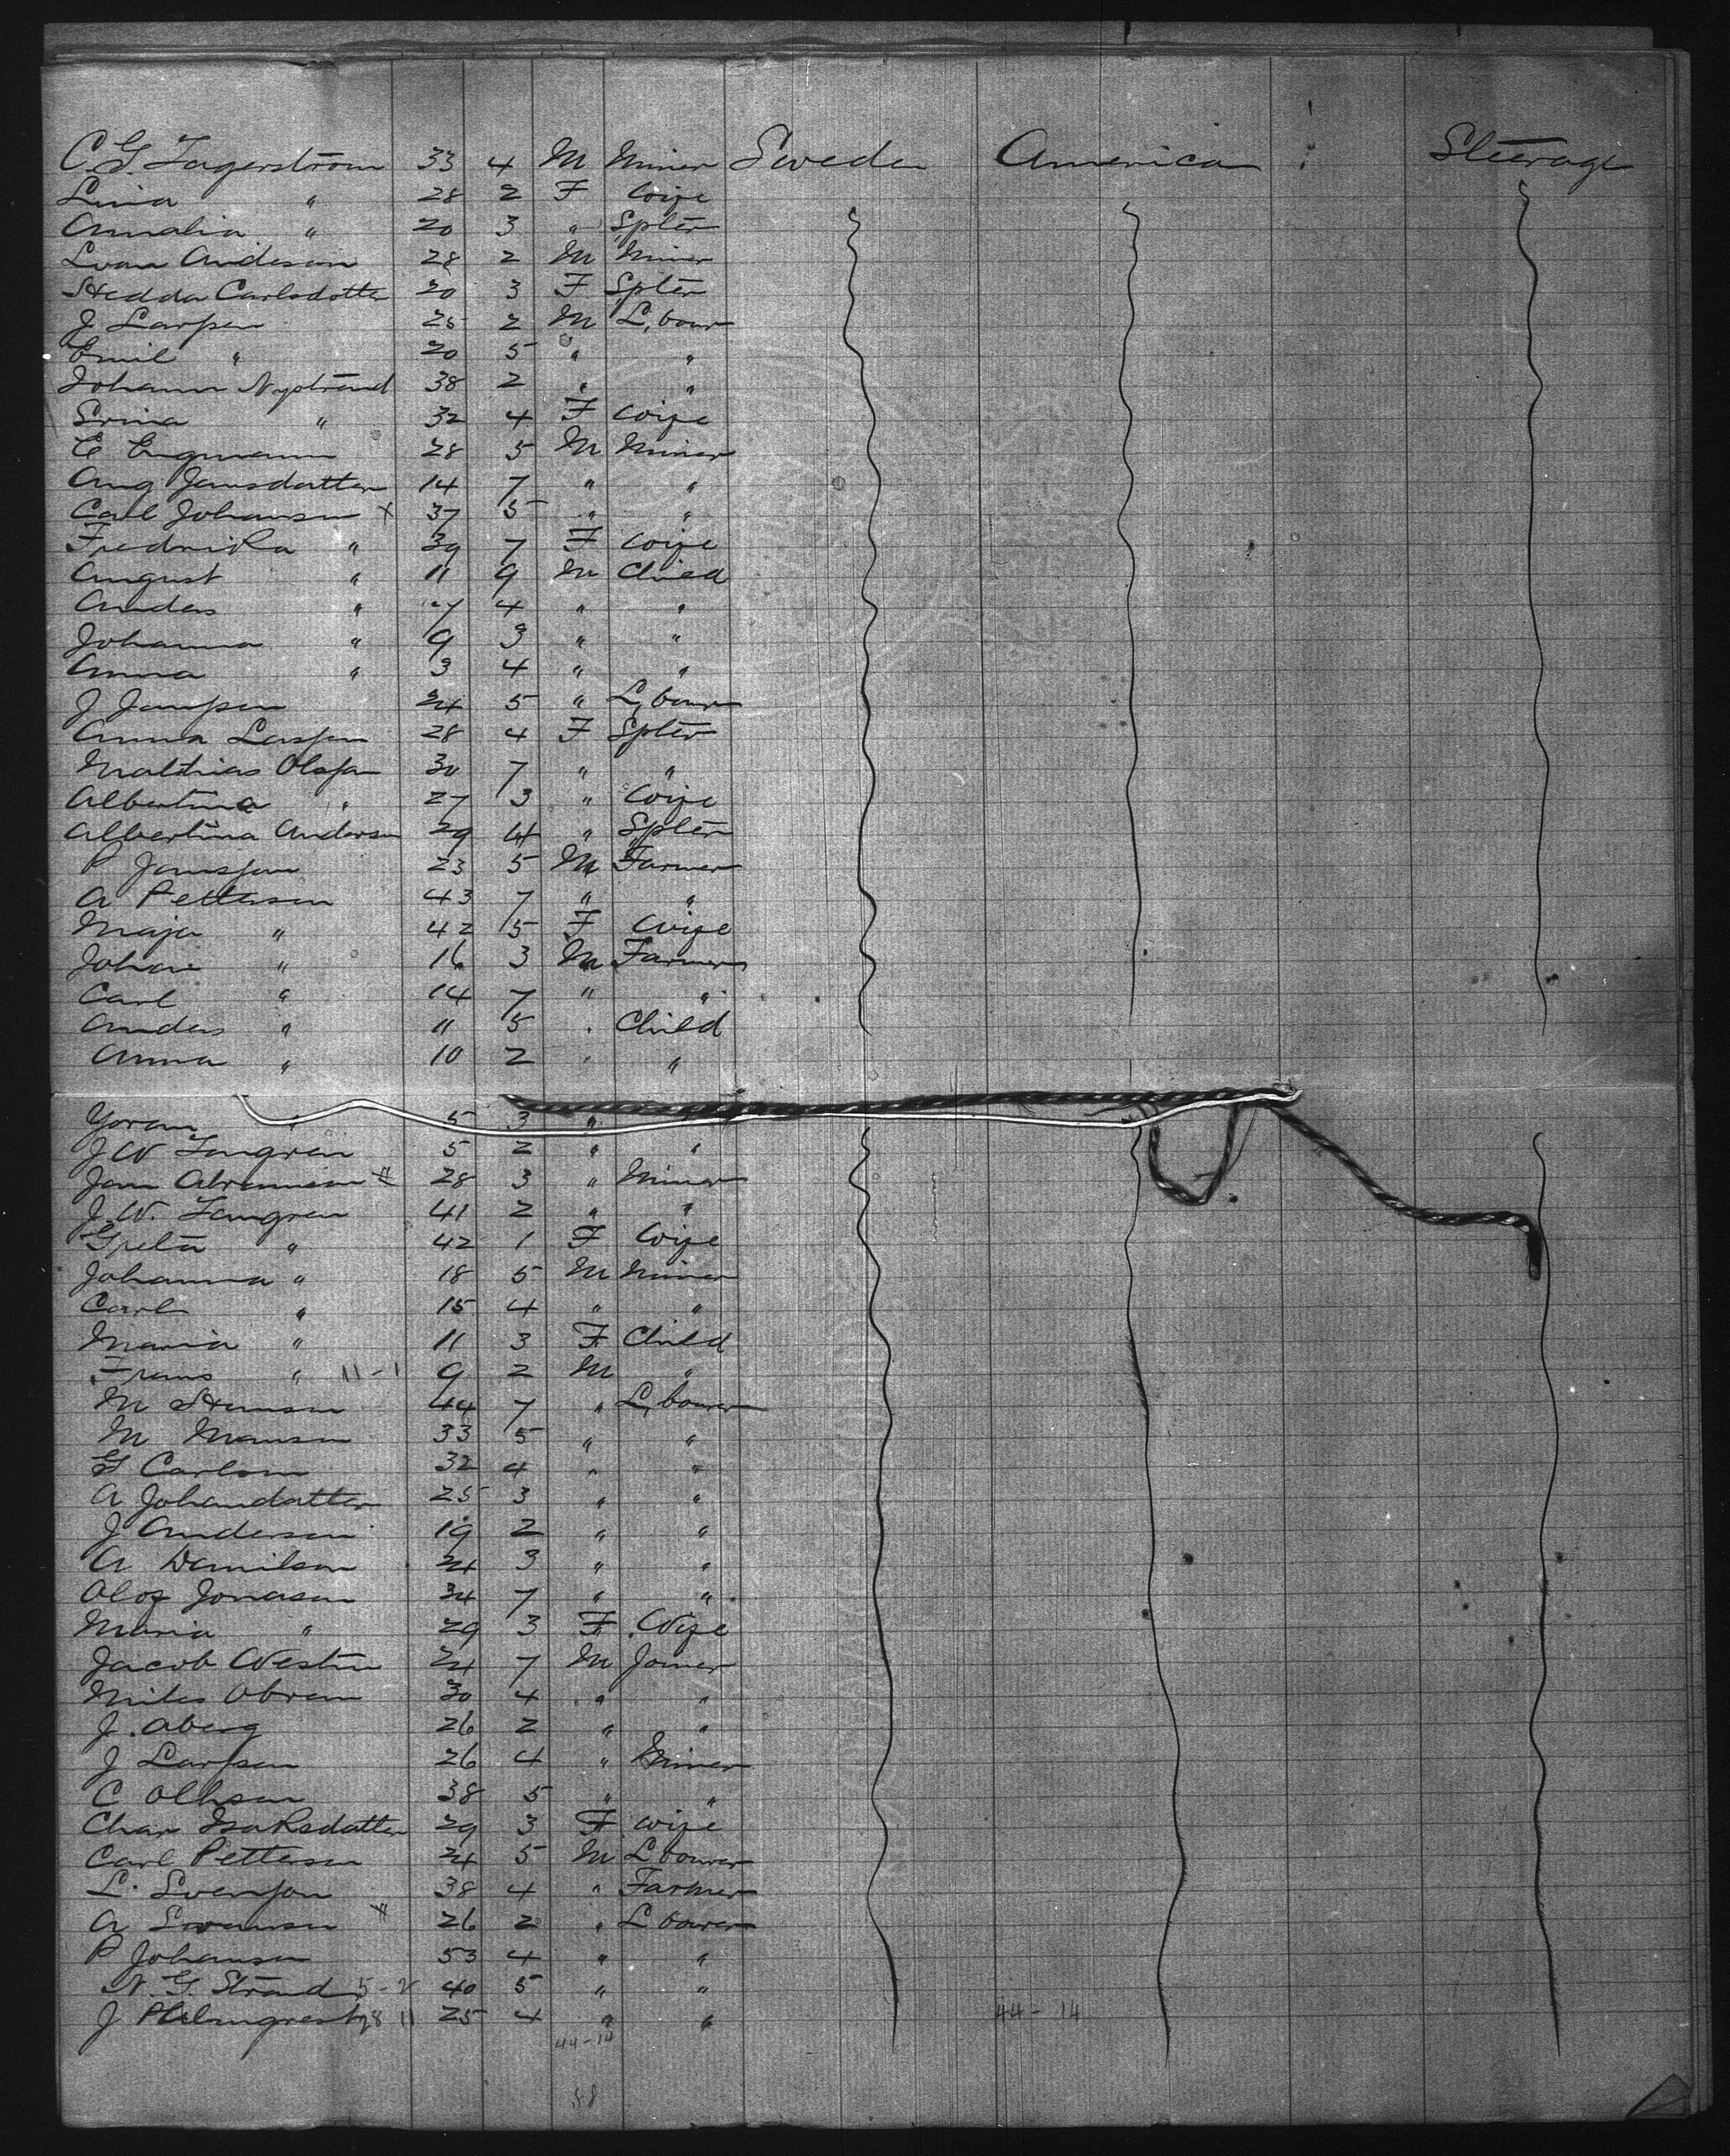 C. G. Fagerström 33 4 M Miner Sweden America Steerage
Lina " 28 2 F Wife
Amalia " 20 3 " Spter
Anderson 28 2 M Miner
Hedda Carlsdotter 20 3 F Spter
J Larssen 25 2 M Lbour
Emil " 20 5 " "
Johann Nystrand 38 2 " "
" 32 4 F Wife
E Engmann 28 5 M Miner
Aug Jansdatter 14 7 " "
Carl Johansen x 37 5 " "
Fredrika " 39 7 F Wife
August " 11 9 M Child
Andas " 7 4 " "
Johanna " 9 3 " "
Anna " 3 4 " "
J Janssen 24 5 " Lbour
Anna Lassen 28 4 F Spter
Mathias Olssen 30 7 " "
Albertina " 27 3 " Wife
Albertina Anderson 29 4 " Spter
P Jansson 23 5 M Farmer
A Petterson 43 7 " "
Maja " 42 5 F Wife
Johan " 16 3 M Farmer
Carl " 14 7 " "
Andas " 11 5 " Child
Anna " 10 2 " "
Goran " 5 3 "
J W 5 2 " "
Jan 28 3 " Miner
J. W. 41 2 " "
Greta " 42 1 F Wife
Johanna " 18 5 M Miner
Carl " 15 4 " "
Maria " 11 3 F Child
Frans " 11-1 9 2 M "
M 44 7 " Lbourer
M Manson 33 5 " "
G Carlson 32 4 " "
A Johandatter 25 3 " "
J Anderson 19 2 " "
A Danilson 24 3 " "
Olof Jonason 34 7 " "
Maria " 29 3 F Wife
Jacob Westin 24 7 M Joiner
Abram 30 4 " "
J. Aberg 26 2 " "
J Larssen 26 4 " Miner
C Olhson 38 5 " "
Char Isaksdatter 29 3 F Wife
Carl Petterson 24 5 M Lbourer
L. Svensson 38 4 " Farmer
A Swanson 26 2 " Lbourer
P Johanson 53 4 " "
N. G. Strand 40 5 " "
J 25 4 " " 44-14
44-14
88